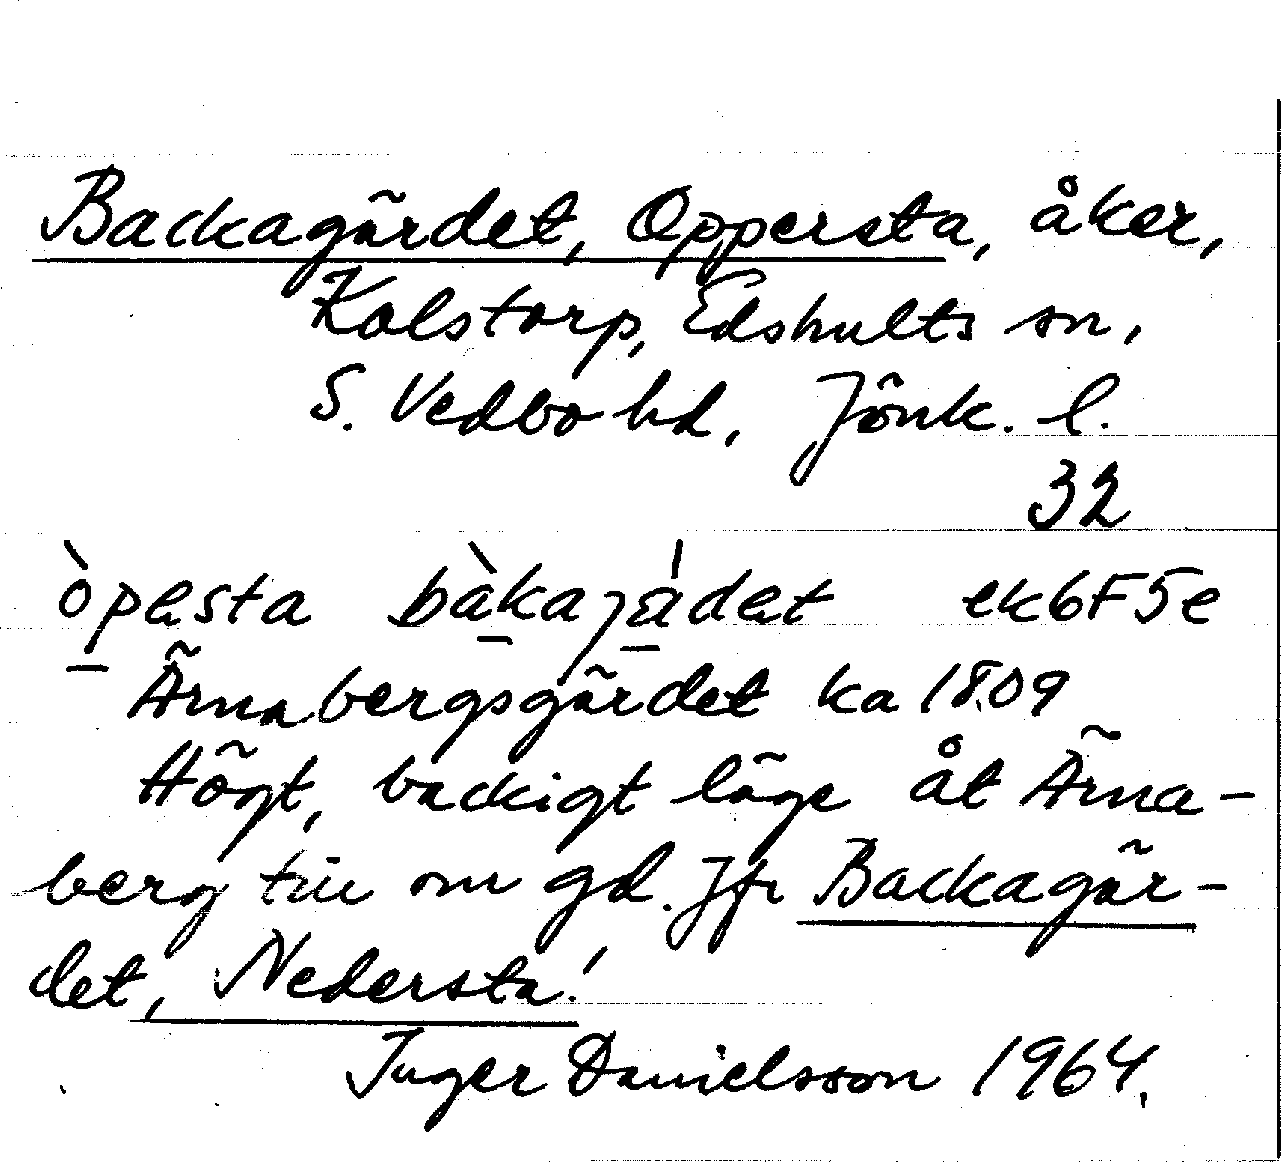 Backagärdet, Oppersta, åker,
Kolstorp, Edshults sn,
S. Vedbo hd, Jönk. l.
32
òpesta bàkajàdet ek6F5e
Ärnabergsgärdet ka 1809
Högt, backigt läge åt Ärna-
berg till om gd. Jfr Backagär-
det, Nedersta!
Inger Danielsson 1964.